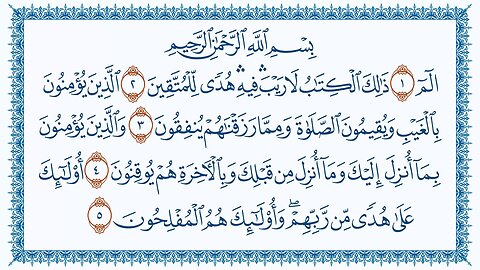 بِسْمِ اللَّهِ الرَّحْمَٰنِ الرَّحِيمِ
الٓمٓ ١ ذَٰلِكَ الْكِتَابُ لَا رَيْبَ ۛ فِيهِ ۛ هُدًى لِّلْمُتَّقِينَ ٢ الَّذِينَ يُؤْمِنُونَ
بِالْغَيْبِ وَيُقِيمُونَ الصَّلَاةَ وَمِمَّا رَزَقْنَاهُمْ يُنفِقُونَ ٣ وَالَّذِينَ يُؤْمِنُونَ
بِمَا أُنزِلَ إِلَيْكَ وَمَا أُنزِلَ مِن قَبْلِكَ وَبِالْآخِرَةِ هُمْ يُوقِنُونَ ٤ أُولَٰئِكَ
عَلَىٰ هُدًى مِّن رَّبِّهِمْ ۖ وَأُولَٰئِكَ هُمُ الْمُفْلِحُونَ ٥